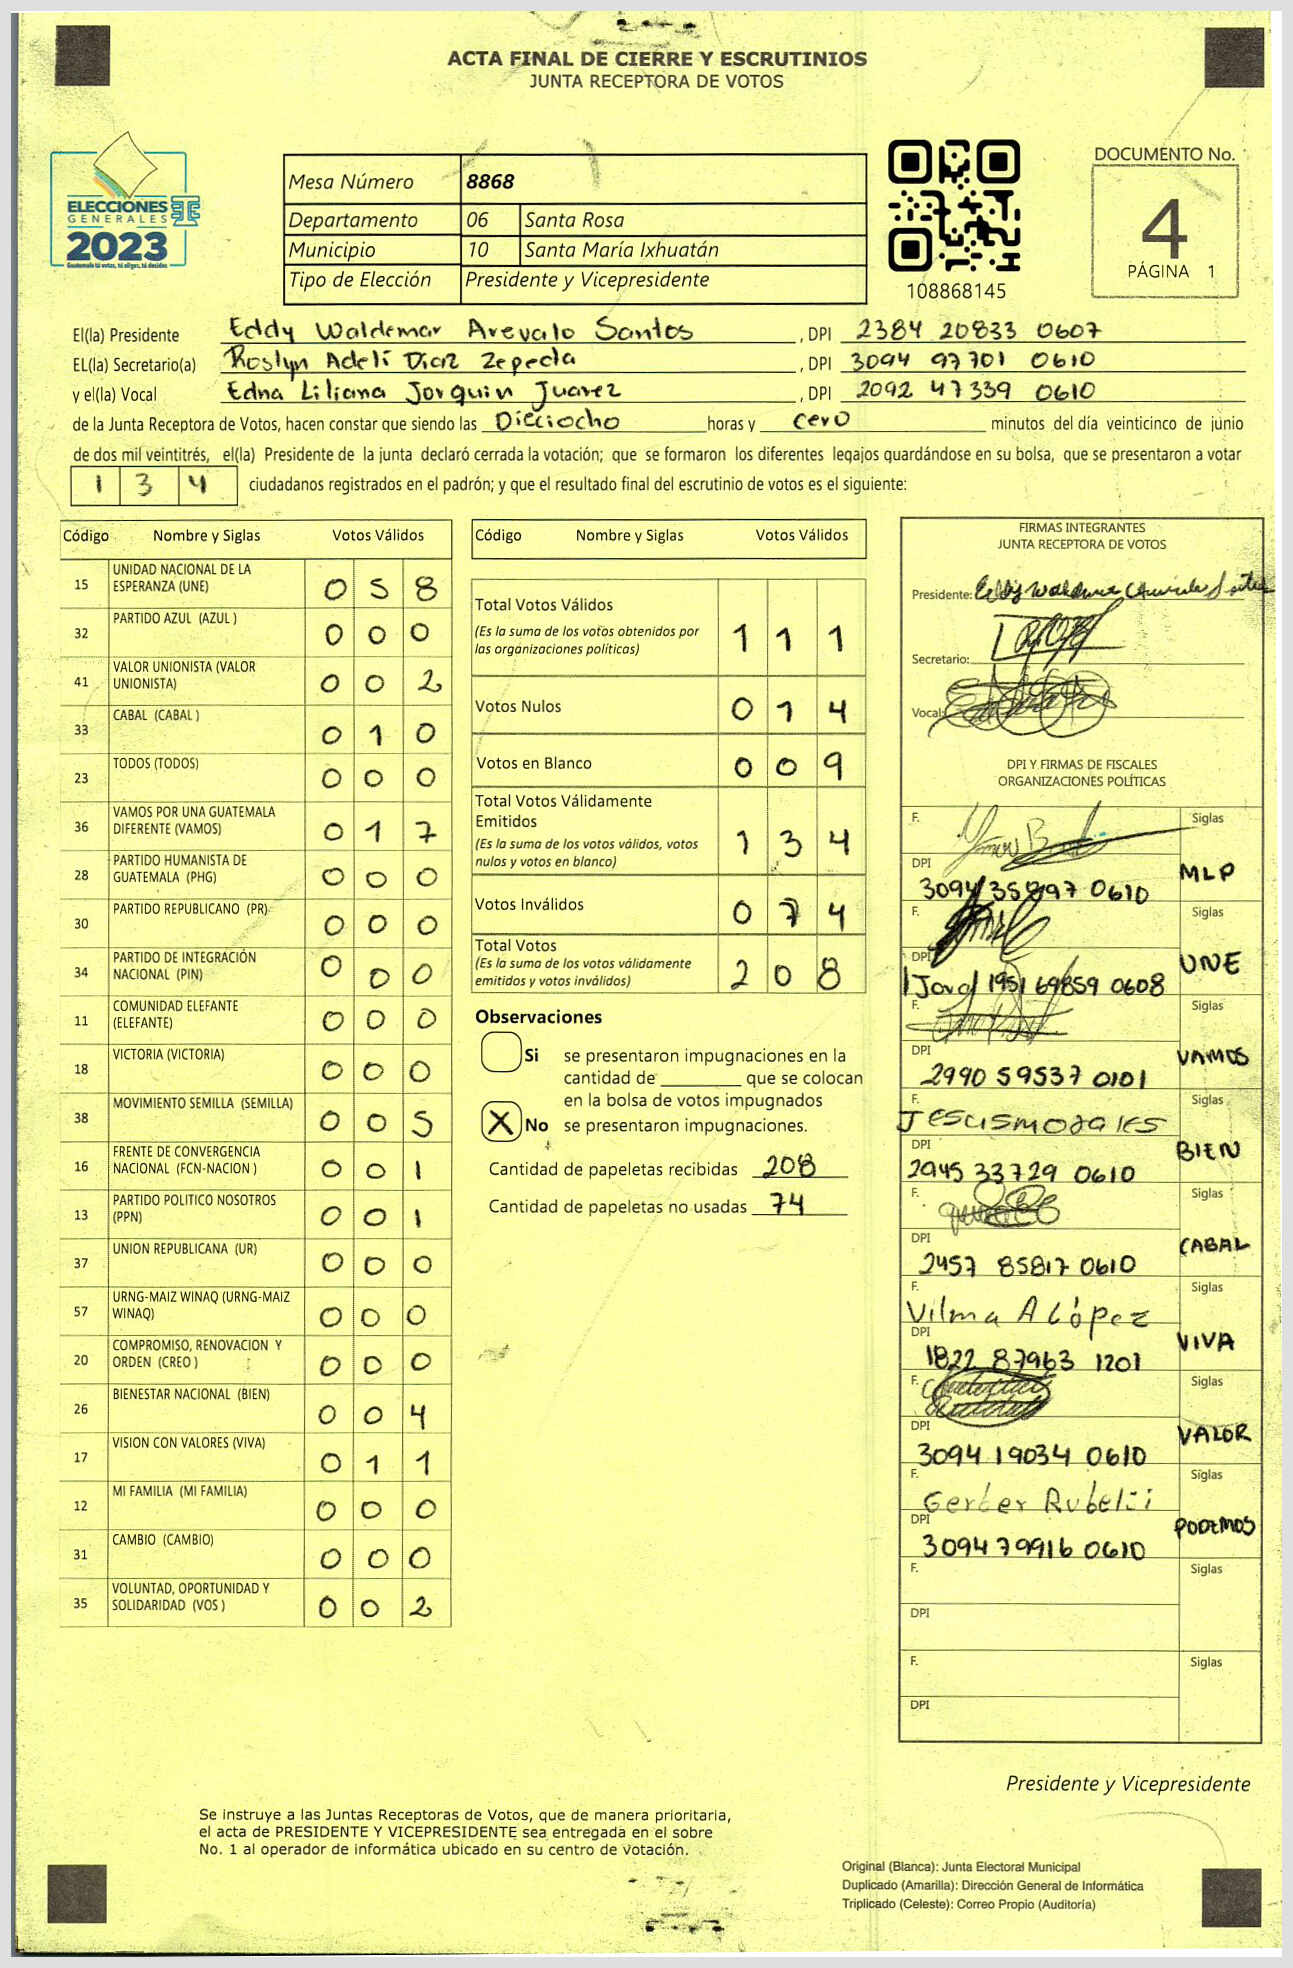 ACTA FINAL DE CIERRE Y ESCRUTINIOS
JUNTA RECEPTORA DE VOTOS
ELECCIONES
GENERALES
2023
Guatemala tú votas, tú eliges, tú decides
Mesa Número 8868
Departamento 06 Santa Rosa
Municipio 10 Santa María Ixhuatán
Tipo de Elección Presidente y Vicepresidente
108868145
DOCUMENTO No.
4
PÁGINA 1
El(la) Presidente Eddy Waldemar Arevalo Santos, DPI 2384 20833 0607
EL(la) Secretario(a) Roslyn Adelí Diaz Zepeda, DPI 3094 97701 0610
y el(la) Vocal Edna Liliana Jorquin Juarez, DPI 2092 47339 0610
de la Junta Receptora de Votos, hacen constar que siendo las Dieciocho horas y cero minutos del día veinticinco de junio
de dos mil veintitrés, el(la) Presidente de la junta declaró cerrada la votación; que se formaron los diferentes legajos guardándose en su bolsa, que se presentaron a votar
1 3 4 ciudadanos registrados en el padrón; y que el resultado final del escrutinio de votos es el siguiente:
Código Nombre y Siglas Votos Válidos
15 UNIDAD NACIONAL DE LA ESPERANZA (UNE) 0 5 8
32 PARTIDO AZUL (AZUL ) 0 0 0
41 VALOR UNIONISTA (VALOR UNIONISTA) 0 0 2
33 CABAL (CABAL ) 0 1 0
23 TODOS (TODOS) 0 0 0
36 VAMOS POR UNA GUATEMALA DIFERENTE (VAMOS) 0 1 7
28 PARTIDO HUMANISTA DE GUATEMALA (PHG) 0 0 0
30 PARTIDO REPUBLICANO (PR) 0 0 0
34 PARTIDO DE INTEGRACIÓN NACIONAL (PIN) 0 0 0
11 COMUNIDAD ELEFANTE (ELEFANTE) 0 0 0
18 VICTORIA (VICTORIA) 0 0 0
38 MOVIMIENTO SEMILLA (SEMILLA) 0 0 5
16 FRENTE DE CONVERGENCIA NACIONAL (FCN-NACION ) 0 0 1
13 PARTIDO POLITICO NOSOTROS (PPN) 0 0 1
37 UNION REPUBLICANA (UR) 0 0 0
57 URNG-MAIZ WINAQ (URNG-MAIZ WINAQ) 0 0 0
20 COMPROMISO, RENOVACION Y ORDEN (CREO ) 0 0 0
26 BIENESTAR NACIONAL (BIEN) 0 0 4
17 VISION CON VALORES (VIVA) 0 1 1
12 MI FAMILIA (MI FAMILIA) 0 0 0
31 CAMBIO (CAMBIO) 0 0 0
35 VOLUNTAD, OPORTUNIDAD Y SOLIDARIDAD (VOS ) 0 0 2
Código Nombre y Siglas Votos Válidos
Total Votos Válidos 1 1 1
(Es la suma de los votos obtenidos por las organizaciones políticas)
Votos Nulos 0 1 4
Votos en Blanco 0 0 9
Total Votos Válidamente Emitidos 1 3 4
(Es la suma de los votos válidos, votos nulos y votos en blanco)
Votos Inválidos 0 7 4
Total Votos 2 0 8
(Es la suma de los votos válidamente emitidos y votos inválidos)
Observaciones
Si se presentaron impugnaciones en la
cantidad de ________ que se colocan
en la bolsa de votos impugnados
X No se presentaron impugnaciones.
Cantidad de papeletas recibidas 208
Cantidad de papeletas no usadas 74
FIRMAS INTEGRANTES
JUNTA RECEPTORA DE VOTOS
Presidente:
Secretario:
Vocal:
DPI Y FIRMAS DE FISCALES
ORGANIZACIONES POLÍTICAS
F. Siglas
DPI 3094 35897 0610 MLP
F. Siglas
DPI 1951 69859 0608 UNE
F. Siglas
DPI 2990 59537 0101 VAMOS
F. Jesus morales Siglas
DPI 2945 33729 0610 BIEN
F. Siglas
DPI 2457 85817 0610 CABAL
F. Vilma A López Siglas
DPI 1822 87963 1201 VIVA
F. Siglas
DPI 3094 19034 0610 VALOR
F. Gerber Siglas
DPI 3094 79916 0610 PODEMOS
F. Siglas
DPI
F. Siglas
DPI
Presidente y Vicepresidente
Se instruye a las Juntas Receptoras de Votos, que de manera prioritaria,
el acta de PRESIDENTE Y VICEPRESIDENTE sea entregada en el sobre
No. 1 al operador de informática ubicado en su centro de votación.
Original (Blanca): Junta Electoral Municipal
Duplicado (Amarilla): Dirección General de Informática
Triplicado (Celeste): Correo Propio (Auditoría)